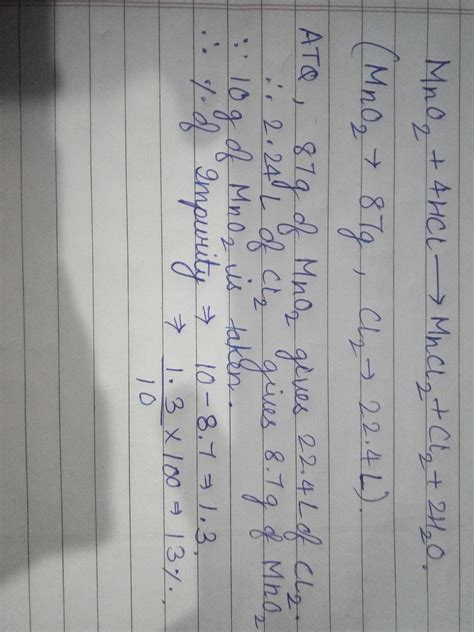 MnO₂ + 4HCl → MnCl₂ + Cl₂ + 2H₂O.
(MnO₂ → 87g, Cl₂ → 22.4L).
ATQ, 87g of MnO₂ gives 22.4L of Cl₂.
∴ 2.24L of Cl₂ gives 8.7g of MnO₂
∵ 10g of MnO₂ is taken.
∴ % of Impurity ⇒ 10 - 8.7 ⇒ 1.3.
⇒ 1.3/10 × 100 ⇒ 13%.